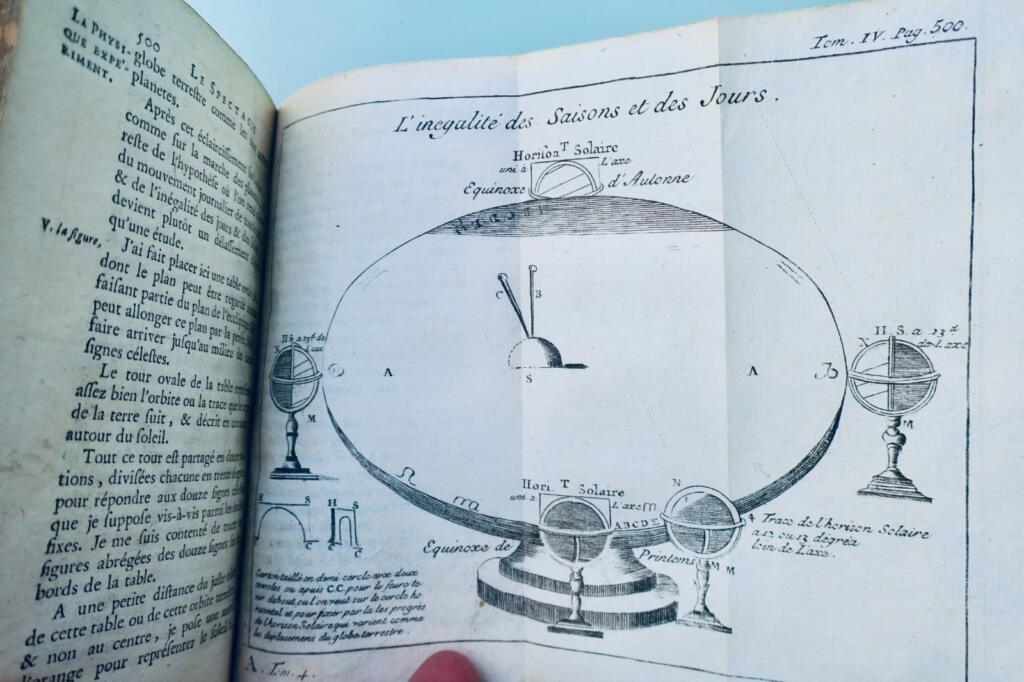 500
LE SPECTACLE
LA PHYSI-
QUE EXPÉ-
RIMENT.
globe terrestre comme les
planetes.
Après cet éclaircissement
comme sur la marche des
reste de l'hypothése où l'on
du mouvement journalier de
& de l'inégalité des jours & des
devient plutôt un délassement
qu'une étude.
V. la figure.
J'ai fait placer ici une table
dont le plan peut être regardé
faisant partie du plan de l'écliptique
peut allonger ce plan par la pensée
faire arriver jusqu'au milieu des
signes célestes.
Le tour ovale de la table
assez bien l'orbite ou la trace que le
de la terre suit, & décrit en
autour du soleil.
Tout ce tour est partagé en douze
tions, divisées chacune en trente
pour répondre aux douze signes
que je suppose vis-à-vis parmi les
fixes. Je me suis contenté de
figures abrégées des douze signes
bords de la table.
A une petite distance du juste
de cette table ou de cette orbite
& non au centre, je pose une
l'orange pour représenter le soleil
Tom. IV. Pag. 500.
L'inegalité des Saisons et des Jours.
Horison T Solaire
uni à L'axe
Equinoxe d'Autonne
C B
S
A A
H S. a 23d.
de L'axe
N
M
H S. a 23d.
de L'axe
X
M
Hori T Solaire
uni à L'axe
A B C D E
N
Equinoxe de Printems
M M
Trace de l'horison Solaire
a 12 ou 13 degréa
loin de L'axe.
H S
C C
H S
C C
Carton taillé en demi cercle avec deux
ou apuis C.C. pour le faire te-
nir debout ou l'on veut sur le cercle ho-
rizontal et pour fixer par la les progrès
de l'horison Solaire qui varient comme
les deplacemens du globe terrestre.
A. Tom. 4.